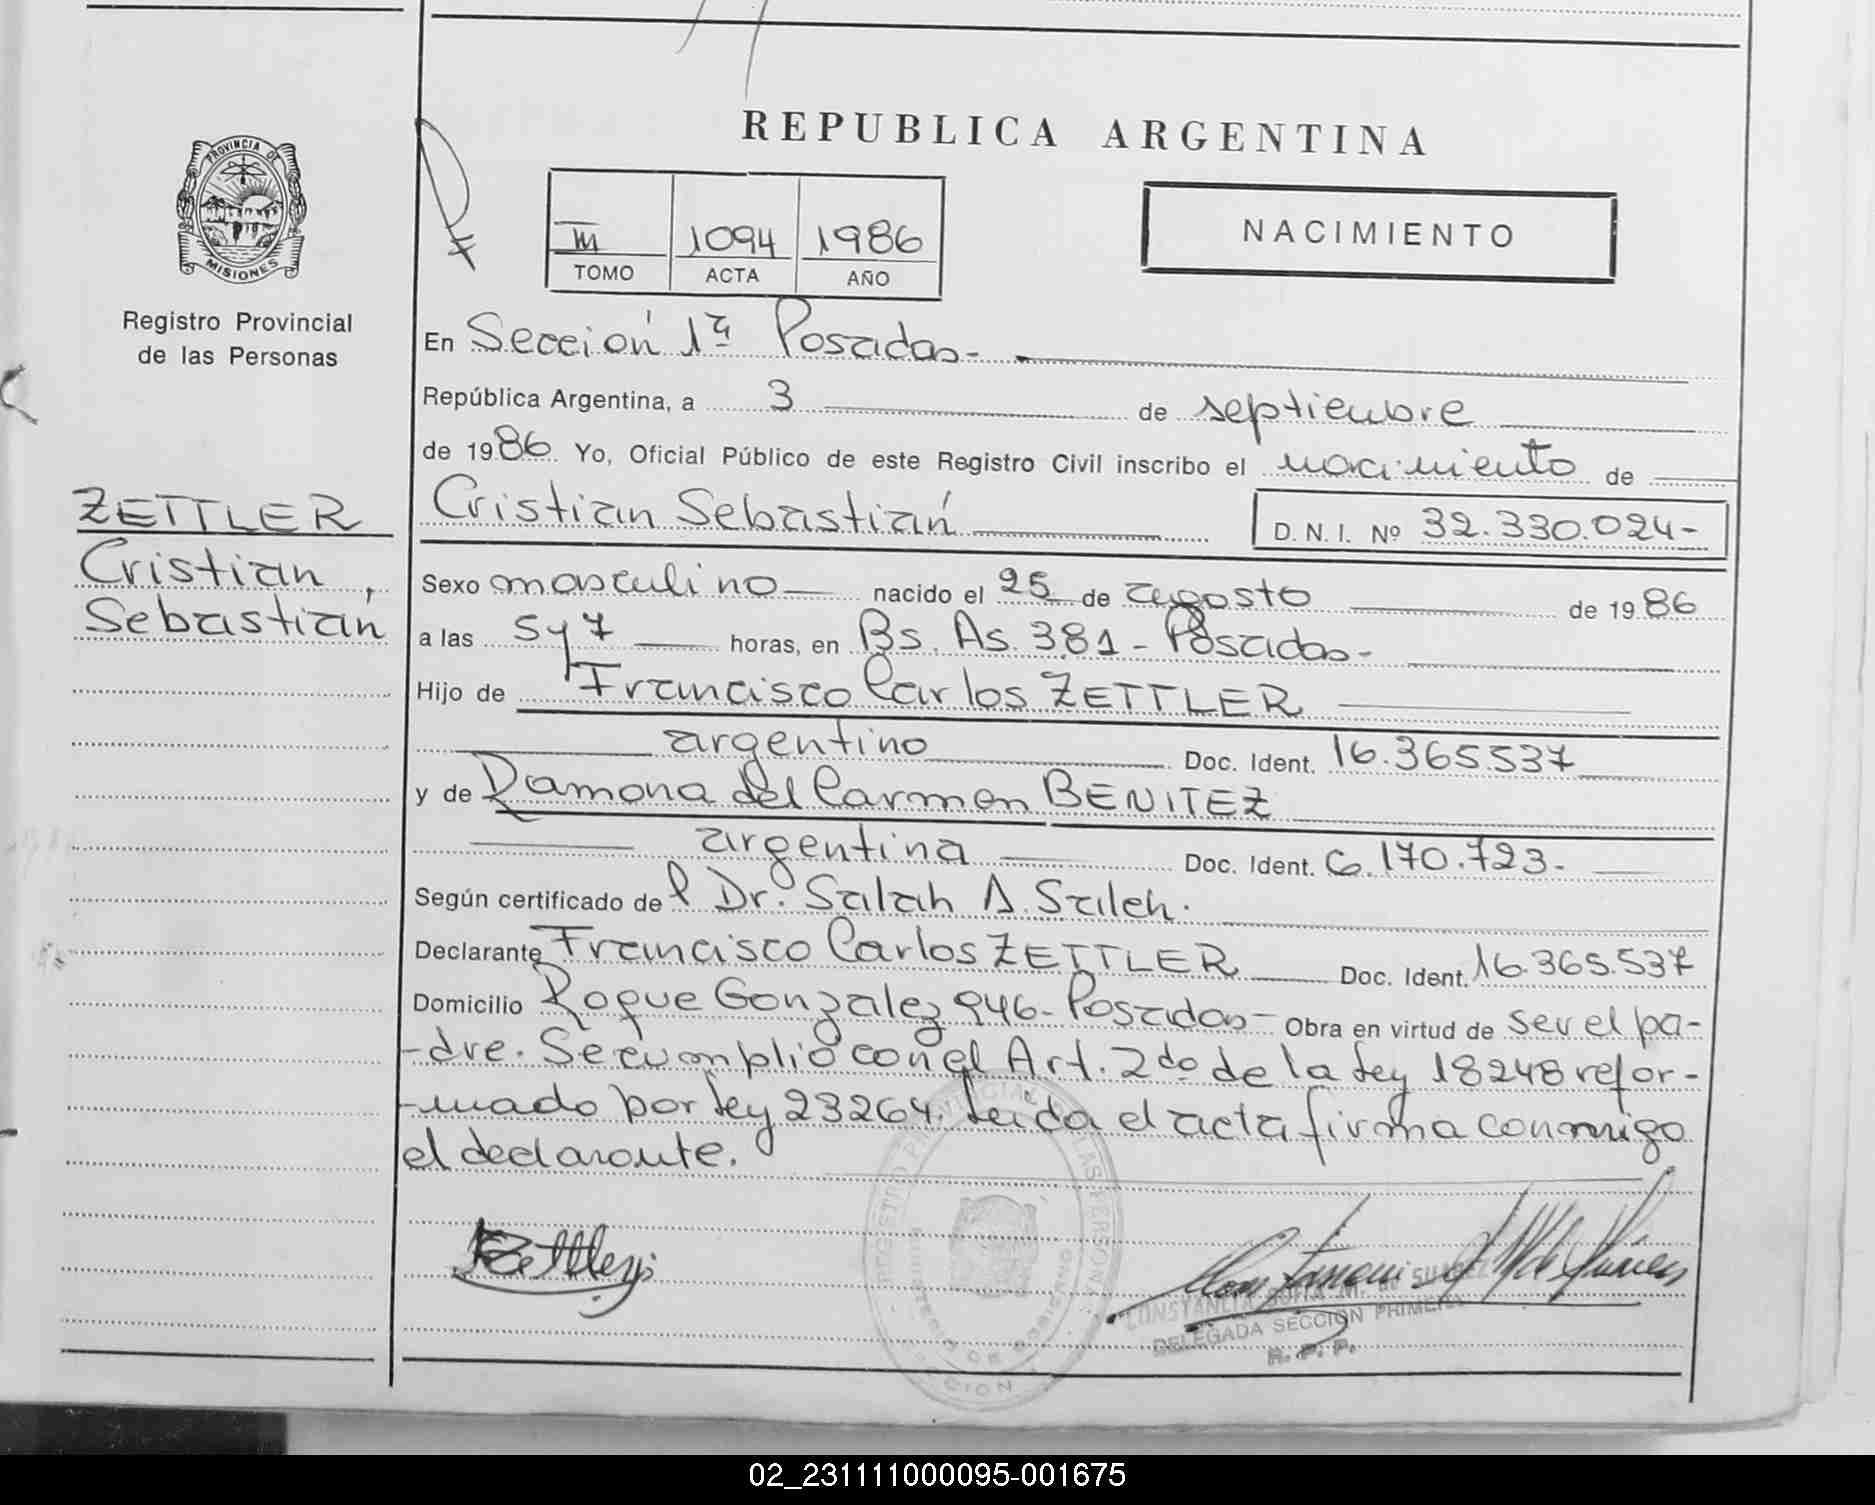 REPUBLICA ARGENTINA
PROVINCIA DE
MISIONES
Registro Provincial
de las Personas
III 1094 1986
TOMO ACTA AÑO
NACIMIENTO
En Sección 1ª Posadas-
República Argentina, a 3 de septiembre
de 1986 Yo, Oficial Público de este Registro Civil inscribo el nacimiento de
ZETTLER
Cristian
Sebastián
Cristian Sebastián D. N. I. Nº 32.330.024-
Sexo masculino nacido el 25 de agosto de 1986
a las 5 y 7 horas, en Bs. As. 381 - Posadas-
Hijo de Francisco Carlos ZETTLER
argentino Doc. Ident. 16.365537
y de Ramona del Carmen BENITEZ
argentina Doc. Ident. 6.170.723.
Según certificado del Dr. Salah A. Saleh.
Declarante Francisco Carlos ZETTLER Doc. Ident. 16.365.537
Domicilio Roque Gonzalez 946- Posadas- Obra en virtud de ser el pa-
-dre. Se cumplió con el Art. 2do de la Ley 18248 refor-
-mado por Ley 23264. Leída el acta firma conmigo
el declarante.
Zettler
CONSTANCIA SOFIA M. de SUAREZ
DELEGADA SECCION PRIMERA
R. P. P.
02_231111000095-001675